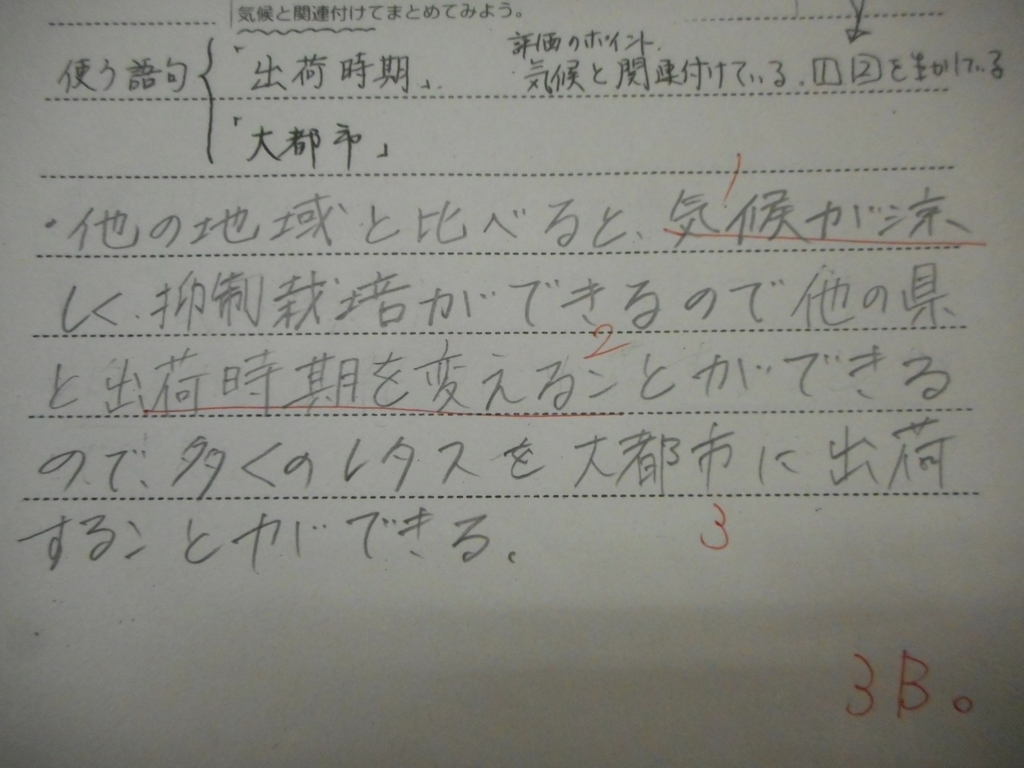 気候と関連付けてまとめてみよう。
評価のポイント
使う語句 「出荷時期」 気候と関連付けている、1 2を生かしている
「大都市」
1
・他の地域と比べると、気候が涼
しく、抑制栽培ができるので他の県
2
と出荷時期を変えることができる
ので、多くのレタスを大都市に出荷
3
することができる。
3B。